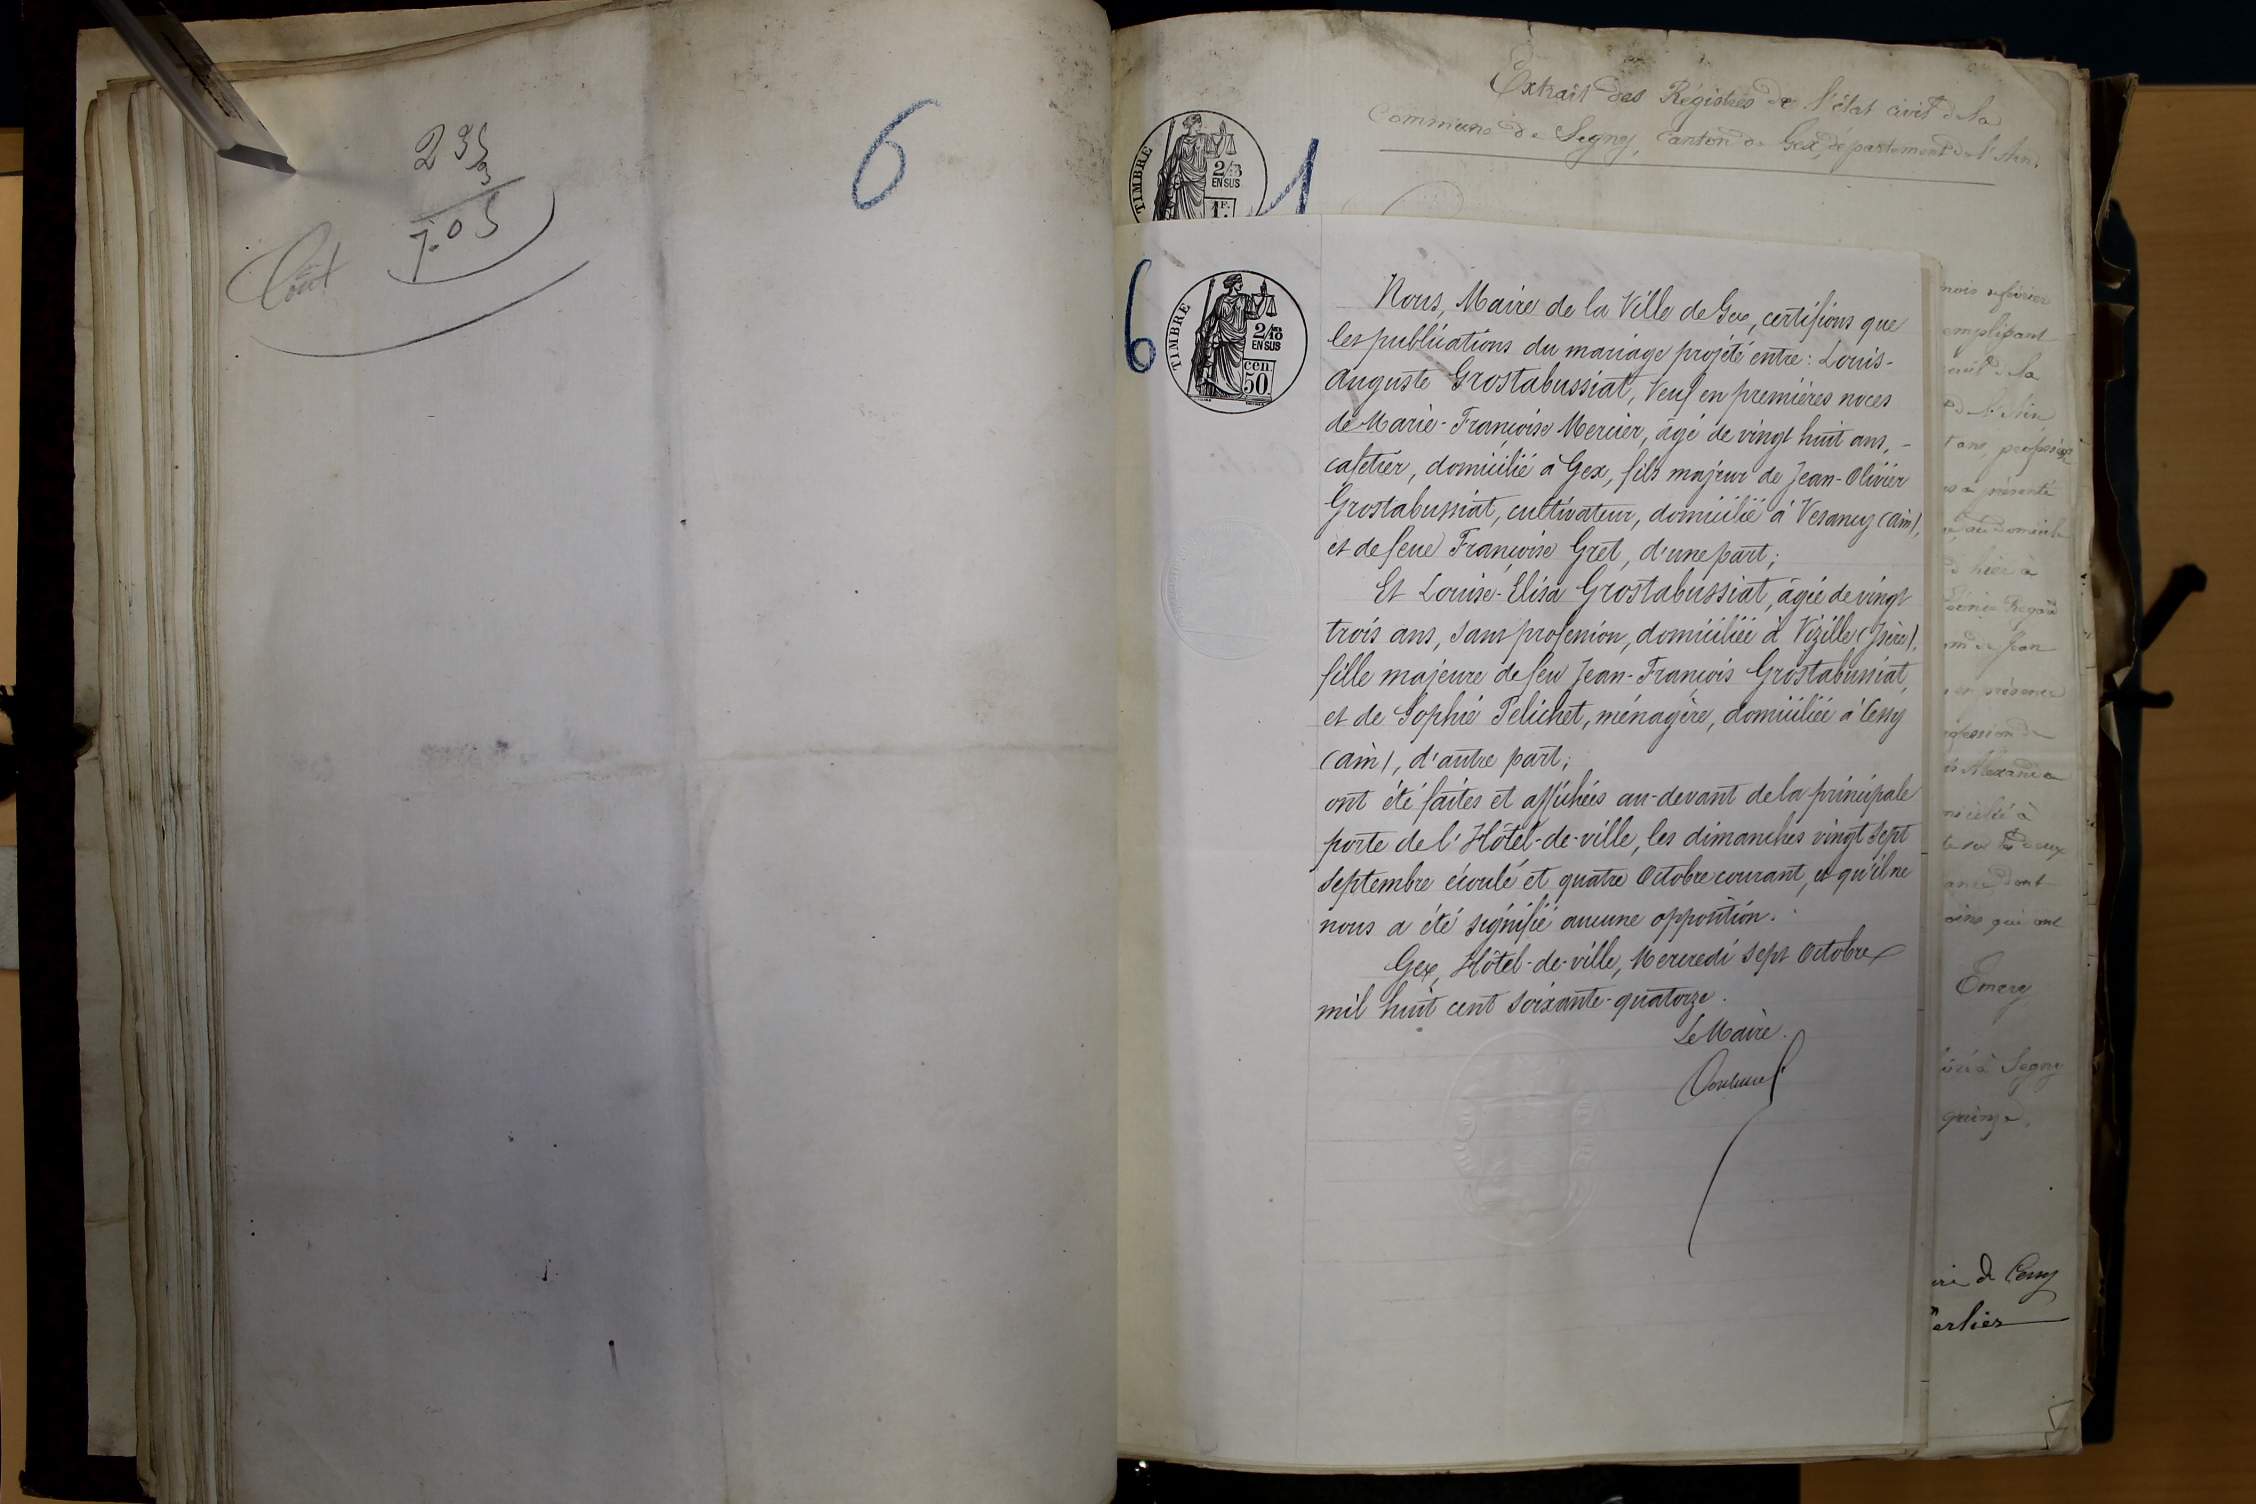 235
3
7.05
Cout
6
Extrait des Régistres de l'état civil de la
Commune de Segny, Canton de Gex, département de l'Ain.
TIMBRE
2/10
EN SUS
1F.
1
6
TIMBRE
2/10
EN SUS
cen.
50.
Nous, Maire de la Ville de Gex, certifions que
les publications du mariage projété entre : Louis-
Auguste Grostabussiat, Veuf en premières noces
de Marie-Françoise Mercier, âgé de vingt huit ans, -
cafetier, domicilié à Gex, fils majeur de Jean-Olivier
Grostabussiat, cultivateur, domicilié à Vesancy (Ain),
et de feue Françoise Gret, d'une part ;
Et Louise-Elisa Grostabussiat, âgée de vingt
trois ans, sans profession, domiciliée à Vizille (Isère),
fille majeure de feu Jean-François Grostabussiat,
et de Sophie Pelichet, ménagère, domiciliée à Cessy
(Ain), d'autre part ;
ont été faites et affichées au-devant de la principale
porte de l'Hôtel-de-ville, les dimanches vingt sept
Septembre écoulé et quatre Octobre courant, et qu'il ne
nous a été signifié aucune opposition.
Gex, Hôtel-de-ville, Mercredi sept Octobre
mil huit cent soixante-quatorze.
Le Maire.
mois de février
emplissant
civil de la
de l'Ain
t ans, profession
a présenté
au domicile
hier a
Regard
de Jean
en présence
profession de
Alexandre
domicilié à
deux
dont
qui ont
Emery
à Segny
quinze.
de Cessy